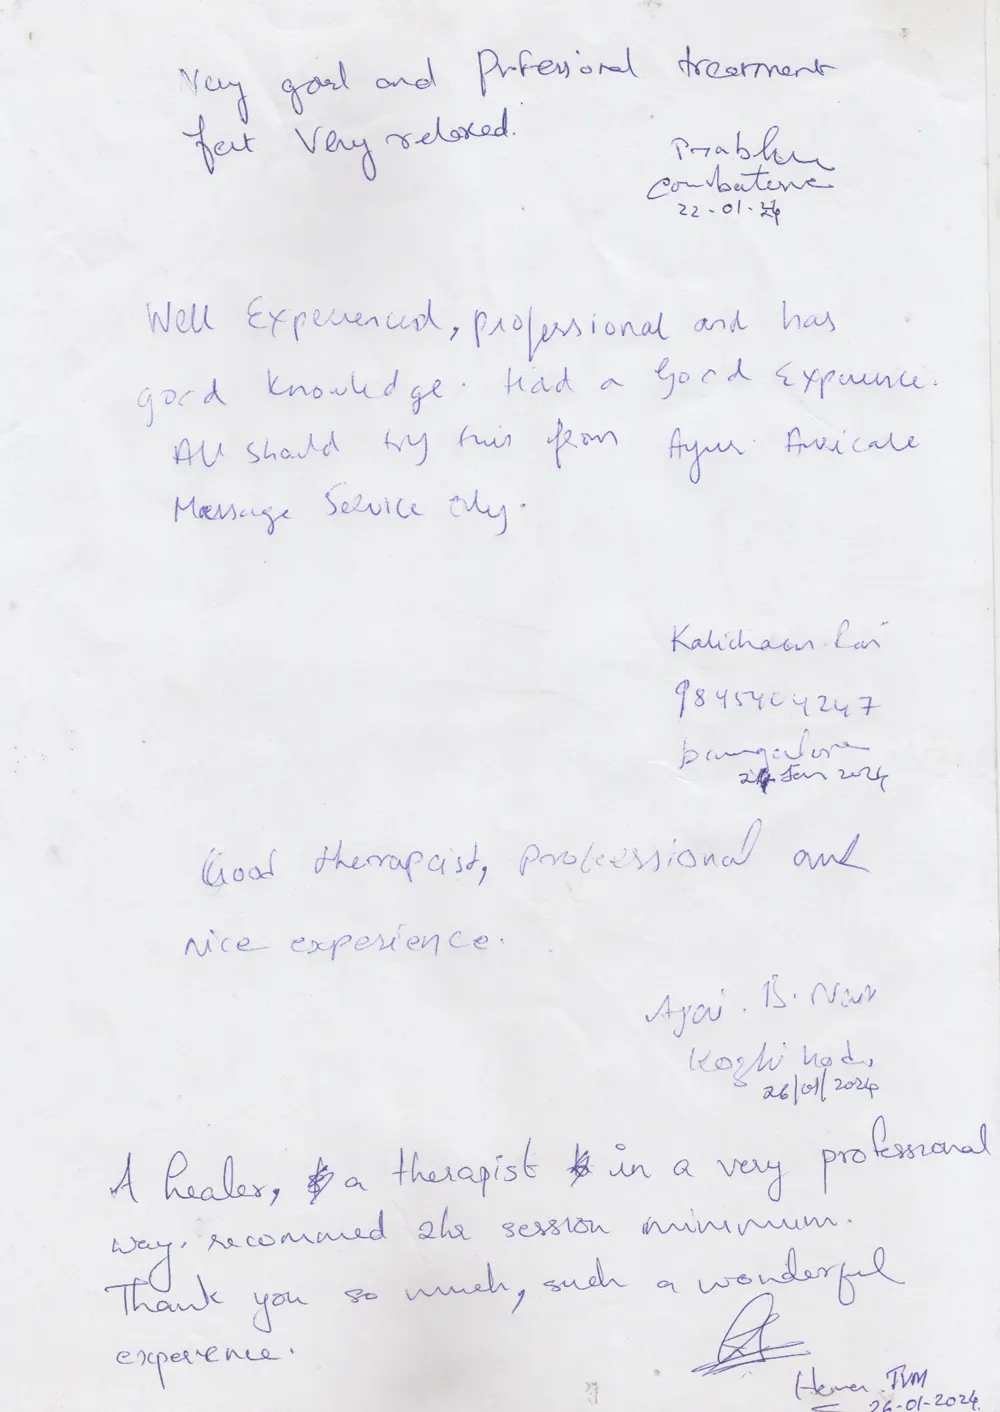 Very good and Professional treatment
felt Very relaxed.
Prabhu
Coimbatore
22-01-24
Well Experienced, professional and has
good knowledge. Had a Good Experience.
All should try this from Ayur
Massage Service Only.
Kalicharan Rai
9845404247
bangalore
24 Jan 2024
Good therapist, professional and
nice experience.
Ajai. B. Nair
Kozhikode
26/01/2024
A healer, a therapist in a very professional
way. recommed 2hr session minimum.
Thank you so much, such a wonderful
experience.
TVM
26-01-2024